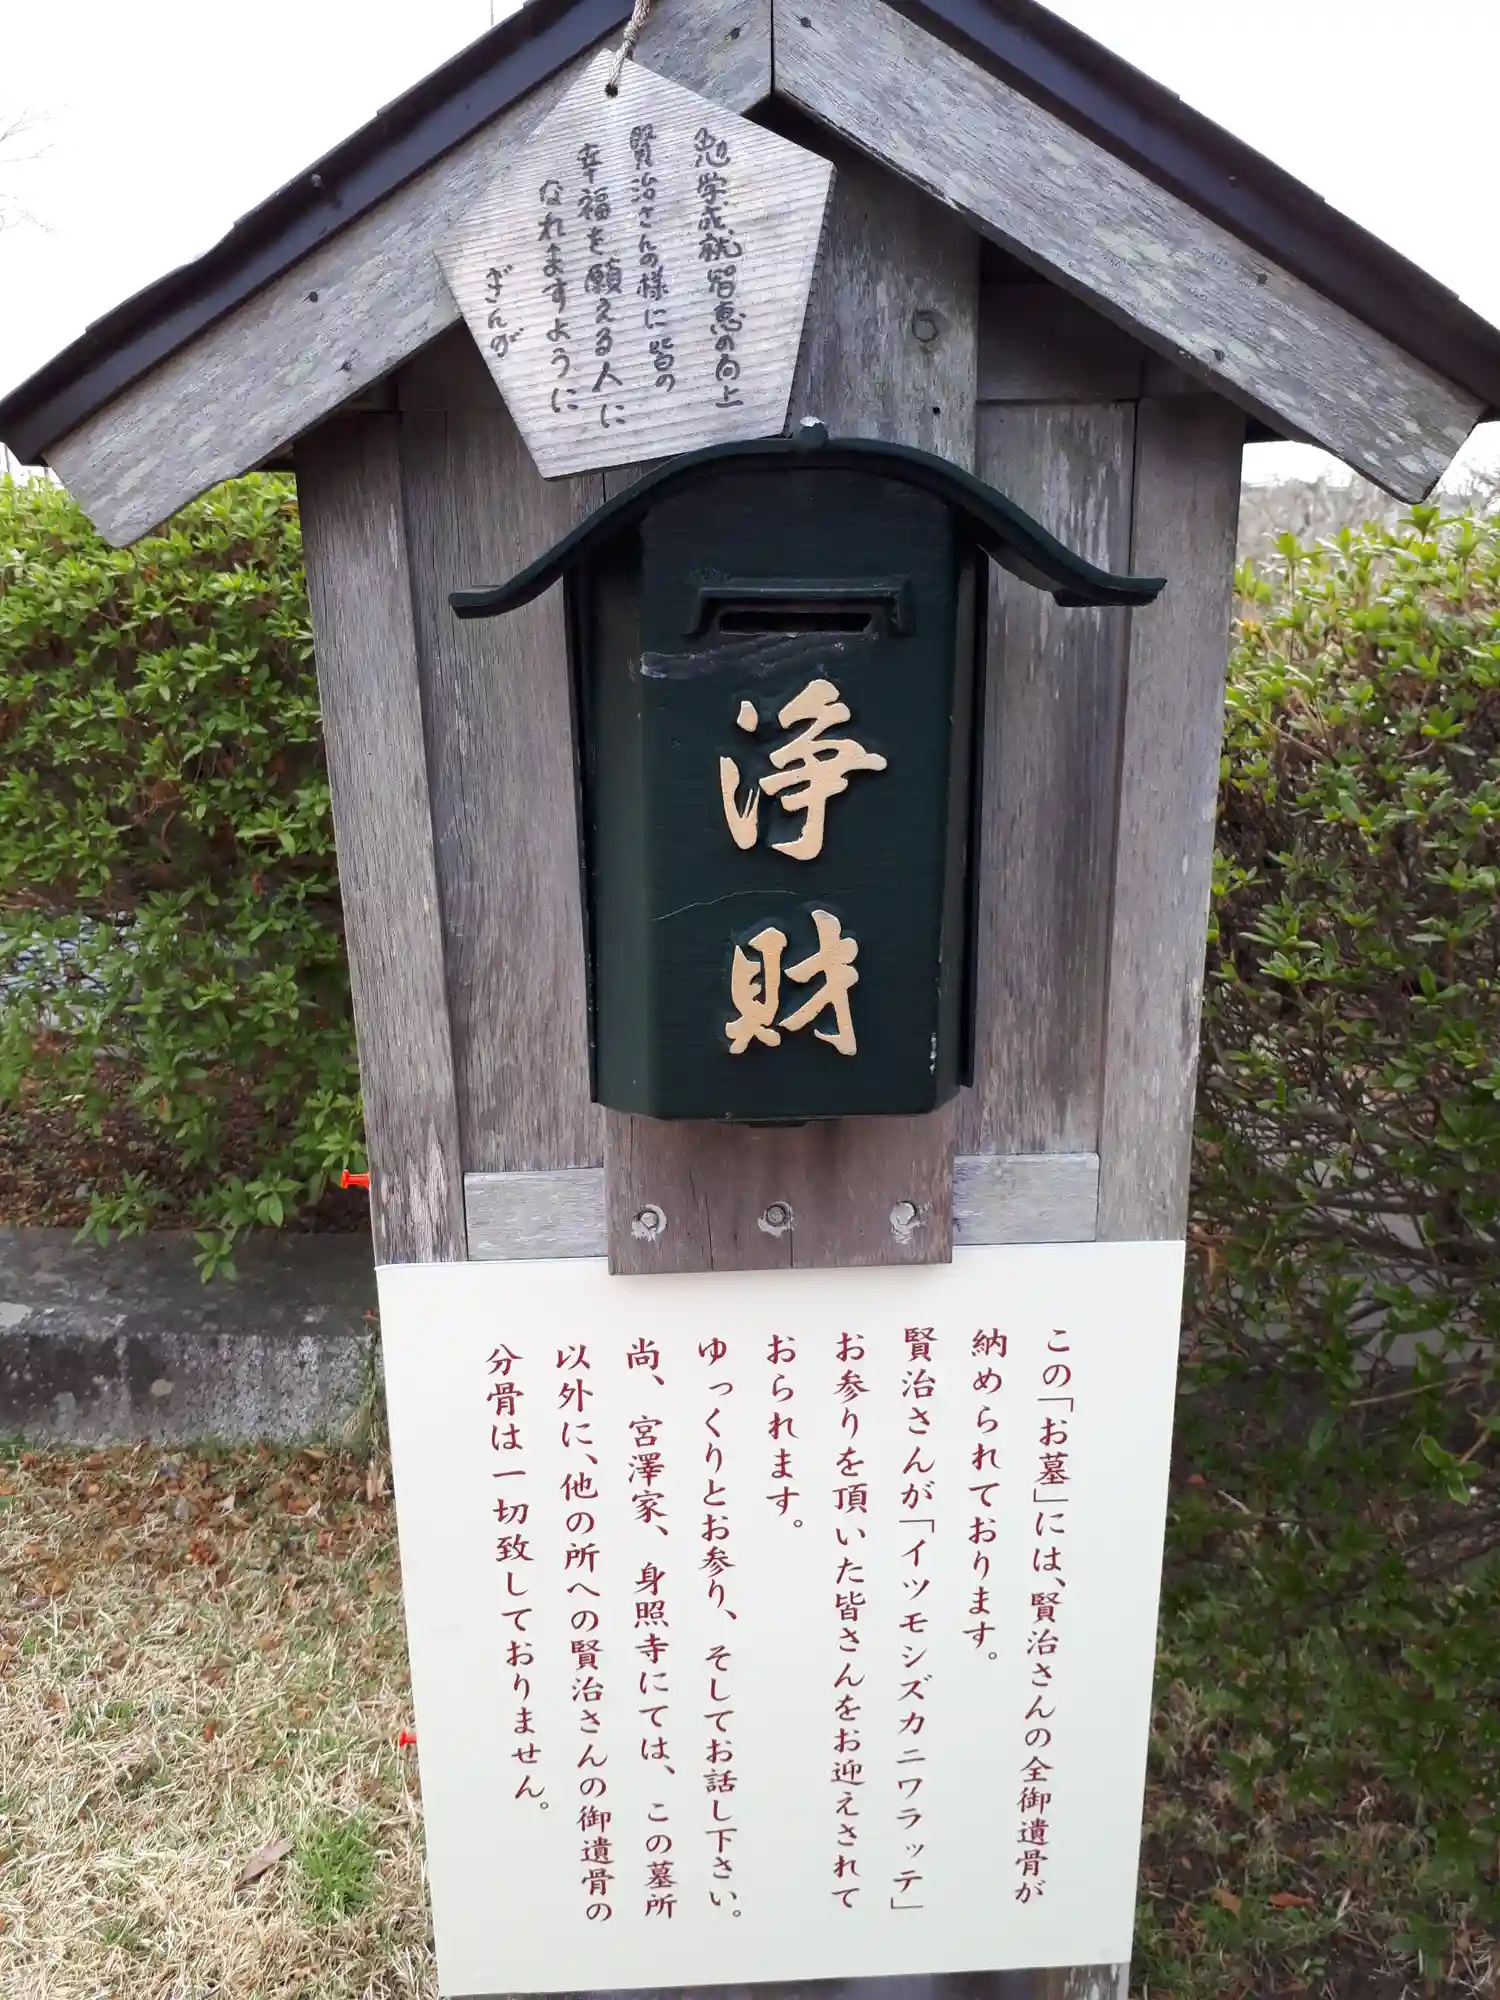 勉学成就智恵の向上
賢治さんの様に皆の
幸福を願える人に
なれますように
ぎんが
浄財
この「お墓」には、賢治さんの全御遺骨が
納められております。
賢治さんが「イツモシズカニワラッテ」
お参りを頂いた皆さんをお迎えされて
おられます。
ゆっくりとお参り、そしてお話し下さい。
尚、宮澤家、身照寺にては、この墓所
以外に、他の所への賢治さんの御遺骨の
分骨は一切致しておりません。